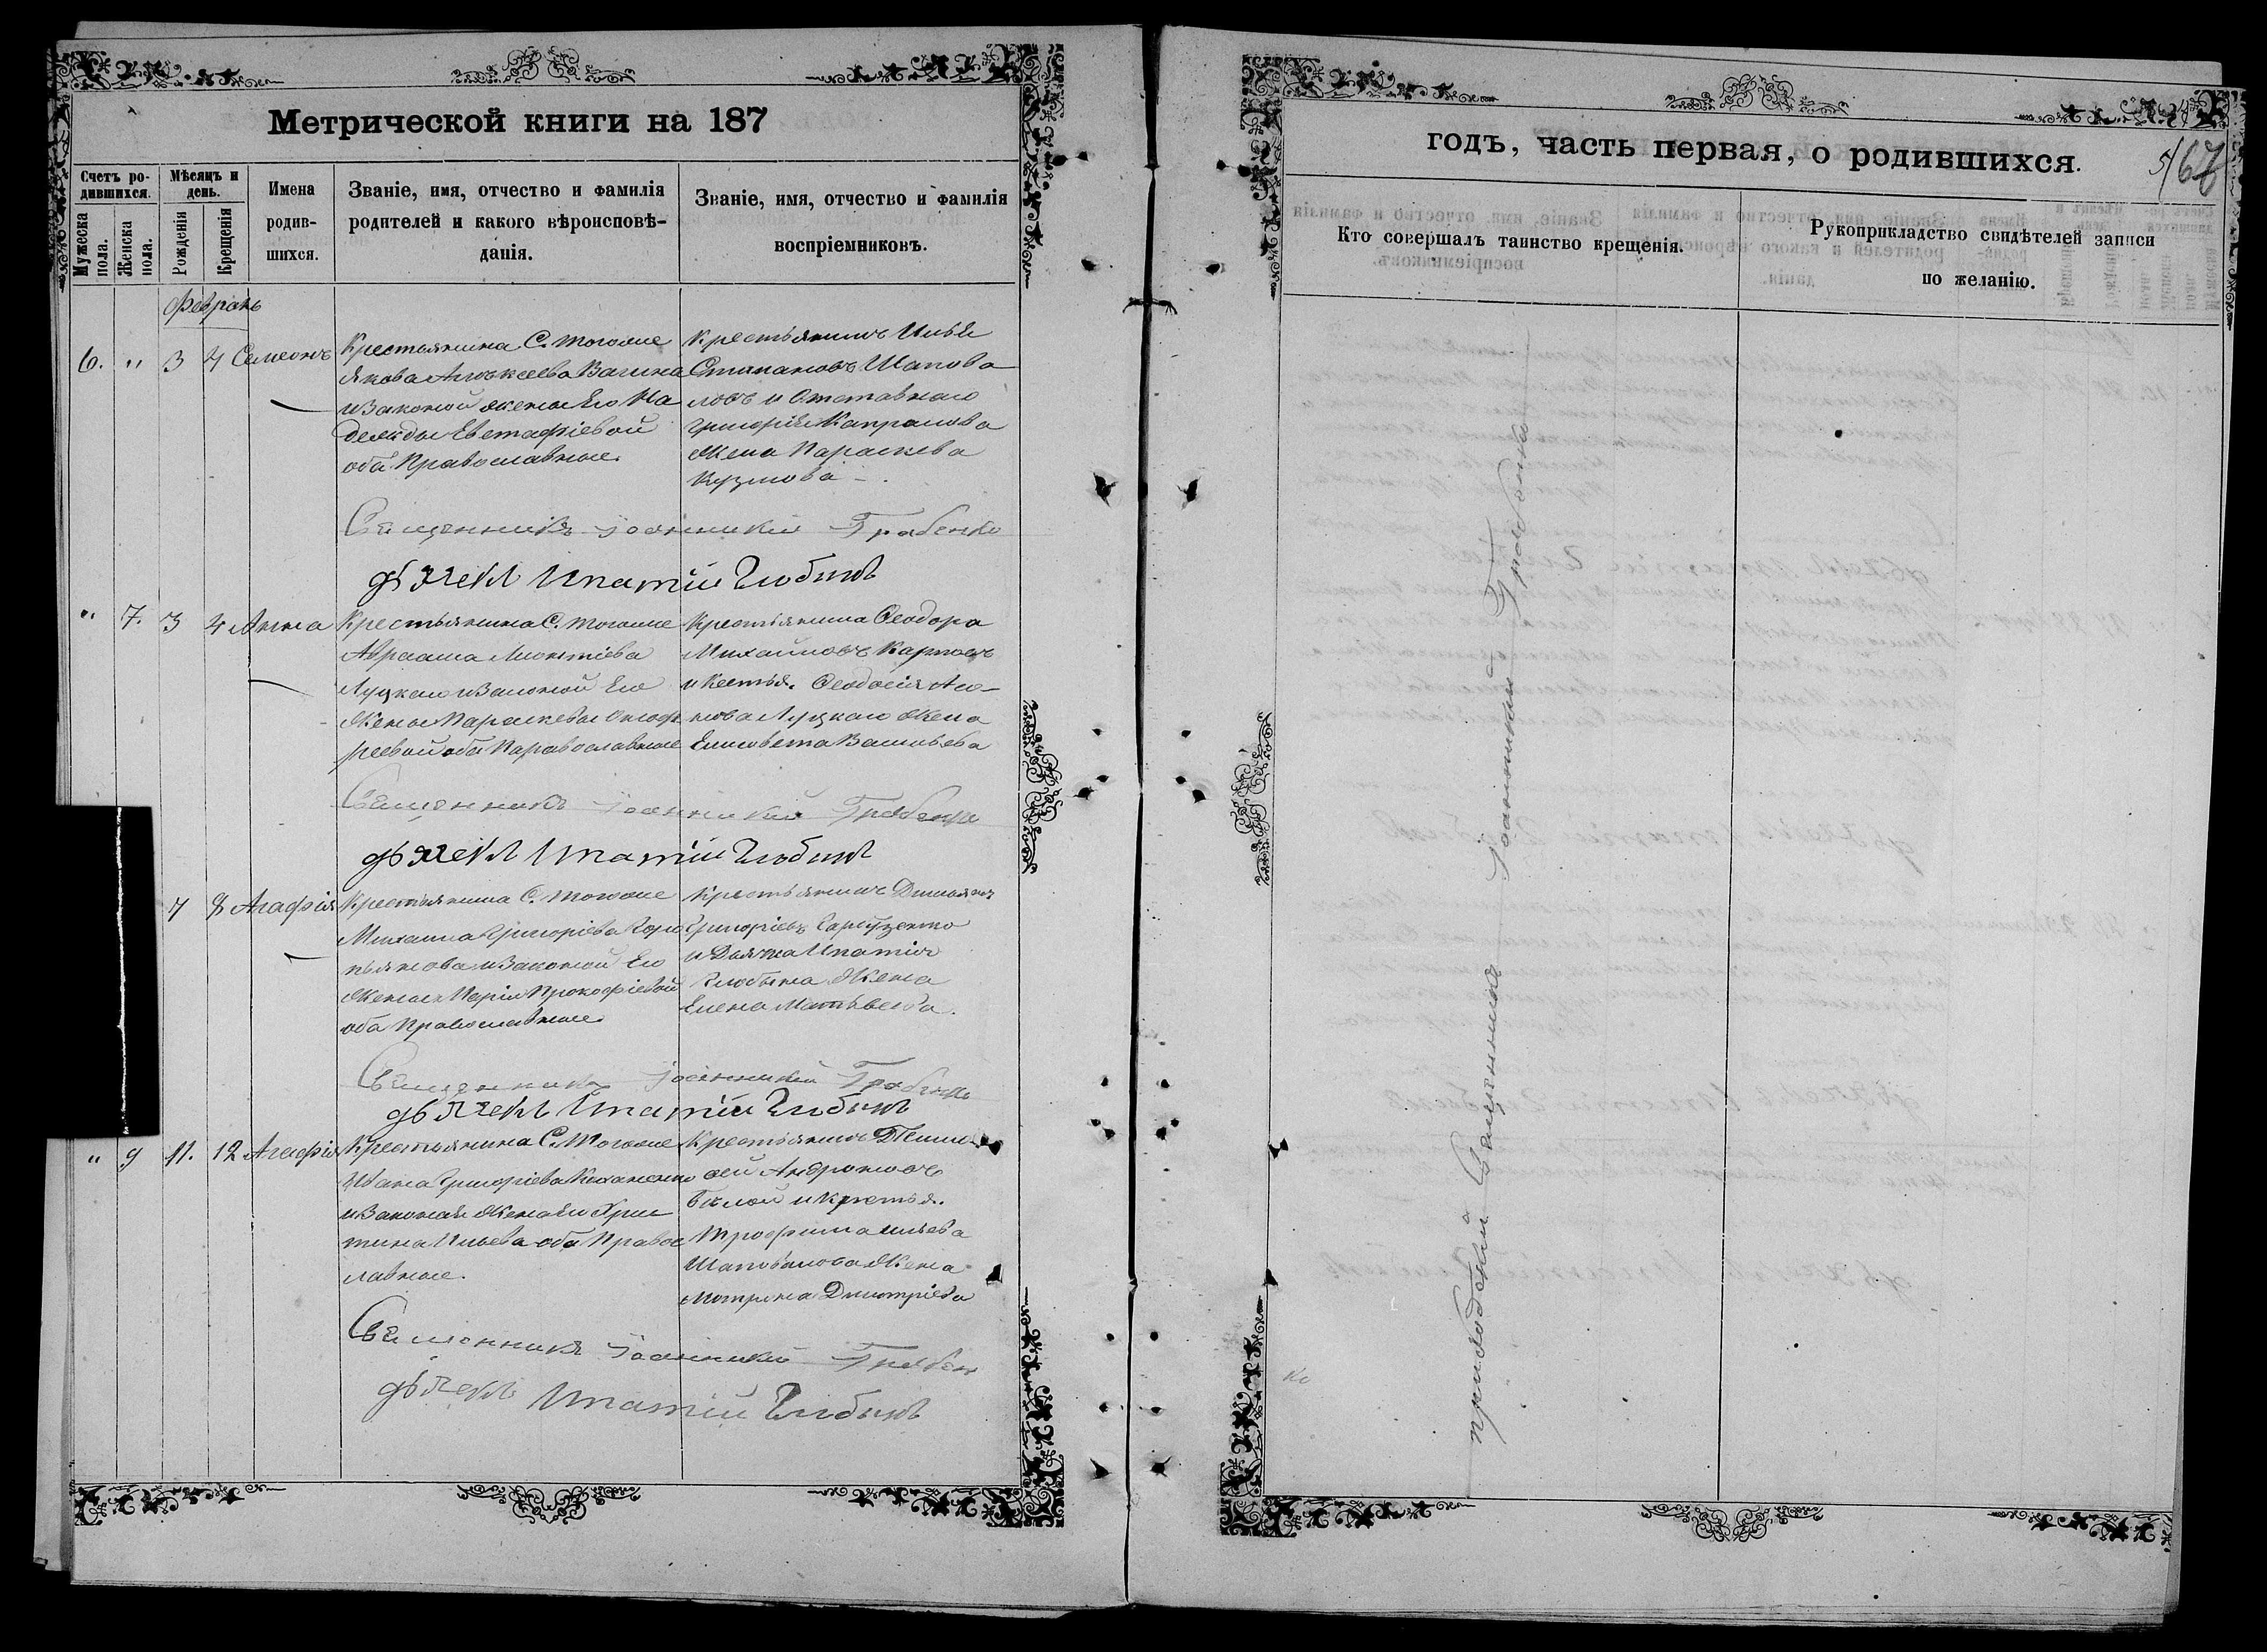 Метрической книги на 187
Счетъ ро-
дившихся.
Мужеска
пола.
Женска
пола.
Мѣсяцъ и
день.
Рожденія
Крещенія
Имена
родив-
шихся.
Званіе, имя, отчество и фамилія
родителей и какого вѣроисповѣ-
данія.
Званіе, имя, отчество и фамилія
воспріемниковъ.
Февраль
6. " 3 4 Семеонъ
Крестьянина С.
Якова Алексѣева Вагина
и Законой жены Его На
дежды Евстафіевой
оба Православные.
Крестьянинъ Илья
Степановъ Шапова
ловъ и Отставнаго
Григорія Капралова
Жена Параскева
Кузмова
Священникъ Іоанникій Грабенко
дьячекъ Ипатій Глобинъ
" 7. 3 4 Анна
Крестьянина С.
Авраама Леонтіева
Луцкаго и Законой Его
Жены Параскевы Оноф
реевой оба Православные
Крестьянина Феодора
Михайловъ Карповъ
и Кестья. Феодосія
Луцкаго Жена
Елисовета Васильева
Священникъ Іоанникій Грабенко
дьячекъ Ипатій Глобинъ
7 8 Агафія
Крестьянина С.
Михаила Григоріева
и Законой Его
Жены Маріи Прокофіевой
оба Православные
Крестьянинъ
Григоріевъ
и Дьячка Ипатія
Глобина Жена
Елена Матвьева.
Священникъ Іоанникій Грабенко
дьячекъ Ипатій Глобинъ
" 9 11. 12 Агафія
Крестьянина С.
Ивана Григоріева
и Законая Жена Его Хрис
тина Ильева оба Правос
лавные.
Крестьянинъ Тимо
фей Андроновъ
Бѣлой и Кресться.
Трофима Ильева
Шаповалова Жена
Мотрона Димитріева
Священникъ Іоанникій Грабен
дьячекъ Ипатій Глобинъ
годъ, часть первая, о родившихся.
67
Кто совершалъ таинство крещенія.
Рукоприкладство свидѣтелей записи
по желанію.
приходскій Священникъ Іоанникій Грабенко